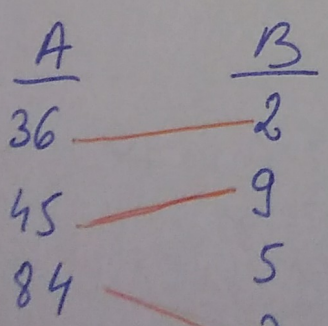 A B
36 2
45 9
84 5